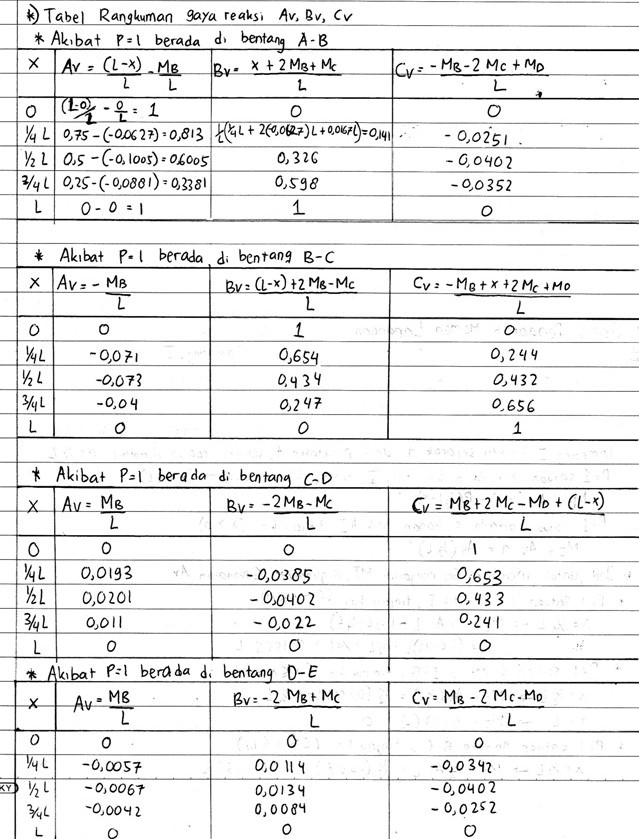 *) Tabel Rangkuman gaya reaksi Av, Bv, Cv
* Akibat P=1 berada di bentang A-B
X | Av = (L-x)/L - MB/L | Bv = x + 2MB + MC/L | Cv = -MB - 2 MC + MD/L
0 | (L-0)/L - 0/L = 1 | 0 | 0
1/4 L | 0,75-(-0,0627)=0,813 | 1/L(1/4L + 2(-0,0627)L + 0,0167L)=0,141 | -0,0251
1/2 L | 0,5-(-0,1005)=0,6005 | 0,326 | -0,0402
3/4 L | 0,25-(-0,0881)=0,3381 | 0,598 | -0,0352
L | 0-0=1 | 1 | 0
* Akibat P=1 berada di bentang B-C
X | Av = -MB/L | Bv = (L-x)+2MB-MC/L | Cv = -MB+x+2MC+MD/L
0 | 0 | 1 | 0
1/4 L | -0,071 | 0,654 | 0,244
1/2 L | -0,073 | 0,434 | 0,432
3/4 L | -0,04 | 0,247 | 0,656
L | 0 | 0 | 1
* Akibat P=1 berada di bentang C-D
X | Av = MB/L | Bv = -2MB-MC/L | Cv = MB+2MC-MD+(L-x)/L
0 | 0 | 0 | 1
1/4 L | 0,0193 | -0,0385 | 0,653
1/2 L | 0,0201 | -0,0402 | 0,433
3/4 L | 0,011 | -0,022 | 0,241
L | 0 | 0 | 0
* Akibat P=1 berada di bentang D-E
X | Av = MB/L | Bv = -2 MB + MC/L | Cv = MB - 2 MC - MD/L
0 | 0 | 0 | 0
1/4 L | -0,0057 | 0,0114 | -0,0342
KY 1/2 L | -0,0067 | 0,0134 | -0,0402
3/4 L | -0,0042 | 0,0084 | -0,0252
L | 0 | 0 | 0